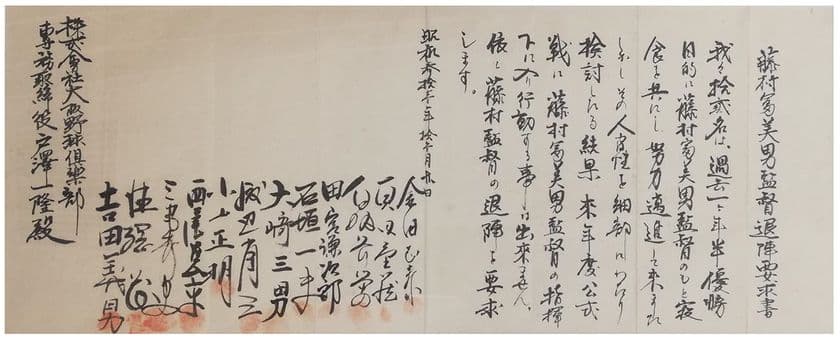 藤村冨美男監督退陣要求書
我々拾弐名は、過去一ヶ年半優勝
目的に藤村冨美男監督のもと寝
食を共にし努力邁進して来ました
しかしその人間性を細部にわたり
検討したる結果 来年度公式
戦に藤村冨美男監督の指揮
下に入り行動する事は出来ません。
依て藤村監督の退陣を要求
します。
昭和参拾壱年拾 月 日
金田正泰
田宮謙次郎
石垣一夫
大崎三男
渡辺省三
小山正明
吉田義男
株式會社大阪野球倶楽部
専務取締役戸澤一隆殿